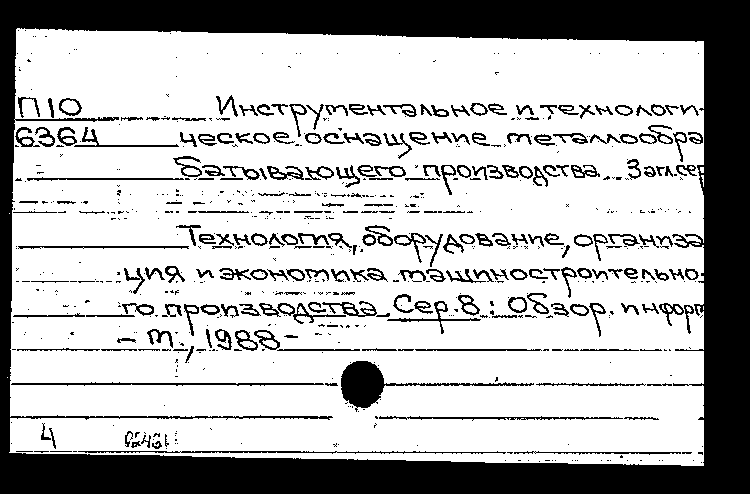 П10 Инструментально е и технологи-
6364 ческое оснащение металлообра
батывающего производства. Загл.сер
Технология, оборудование, организа
ция и экономика машиностроительно-
го производства. Сер.8: Обзор. информ
- М., 1988-
4